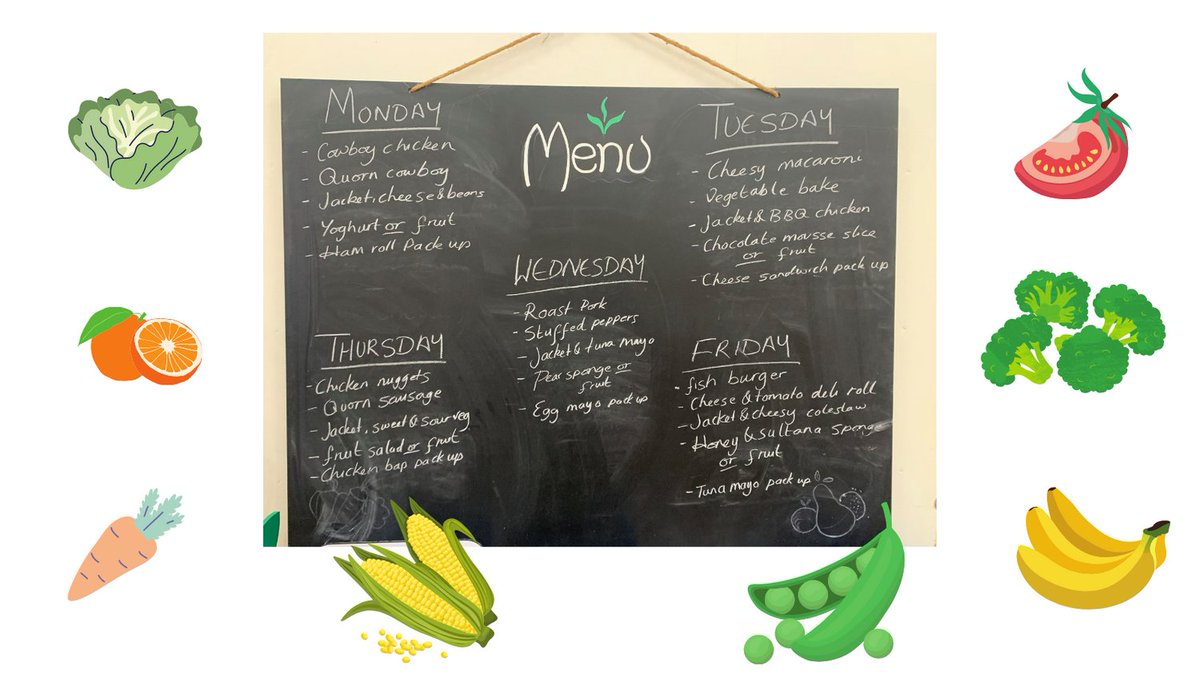 Menu
MONDAY
- Cowboy chicken
- Quorn cowboy
- Jacket, cheese & beans
- Yoghurt or fruit
- Ham roll Pack up
TUESDAY
- Cheesy macaroni
- Vegetable bake
- Jacket & BBQ chicken
- Chocolate mousse slice
or fruit
- Cheese sandwich pack up
WEDNESDAY
- Roast Pork
- Stuffed peppers
- Jacket & tuna mayo
- Pear sponge or
fruit
- Egg mayo pack up
THURSDAY
- Chicken nuggets
- Quorn sausage
- Jacket, sweet & sour veg
- fruit salad or fruit
- Chicken bap pack up
FRIDAY
- fish burger
- Cheese & tomato deli roll
- Jacket & cheesy coleslaw
- Honey & sultana sponge
or fruit
- Tuna mayo pack up